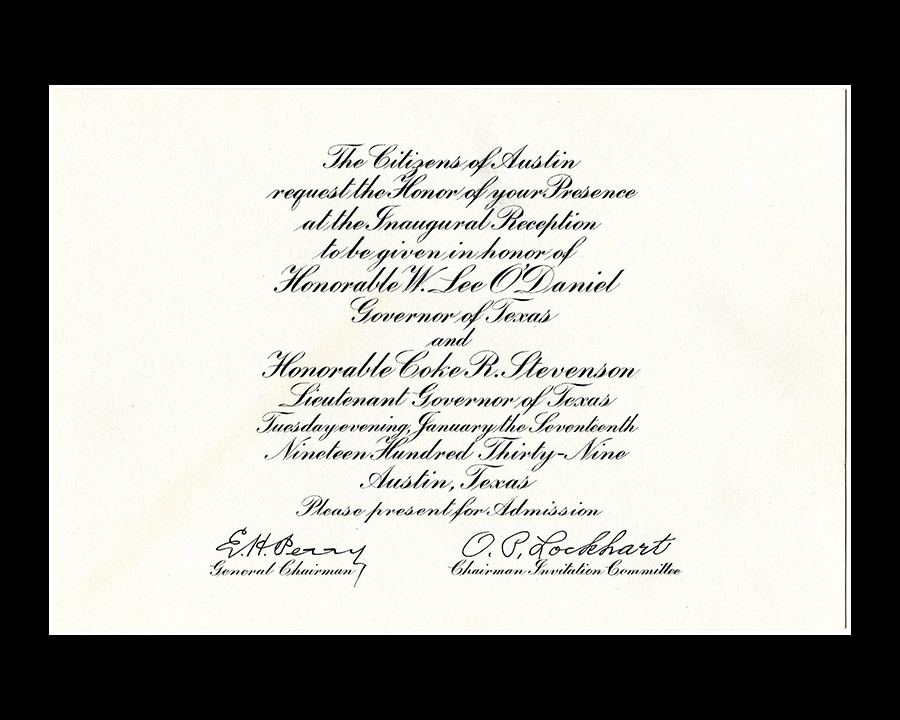 The Citizens of Austin
request the Honor of your Presence
at the Inaugural Reception
to be given in honor of
Honorable W. Lee O'Daniel
Governor of Texas
and
Honorable Coke R. Stevenson
Lieutenant Governor of Texas
Tuesday evening, January the Seventeenth
Nineteen Hundred Thirty-Nine
Austin, Texas
Please present for Admission
E.H. Perry O. P. Lockhart
General Chairman Chairman Invitation Committee